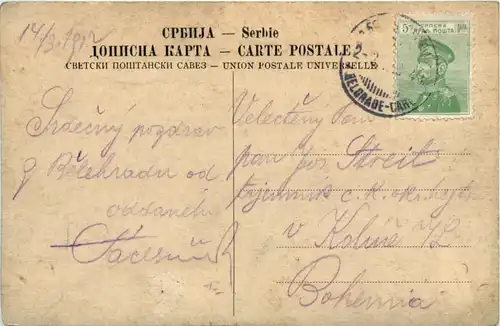 14/3. 1912
СРБИЈА — Serbie
ДОПИСНА КАРТА — CARTE POSTALE
СВЕТСКИ ПОШТАНСКИ САВЕЗ — UNION POSTALE UNIVERSELLE
5
СРПСКА
ПОШТА
BELGRADE-GARE
Srdečný pozdrav
z Bělehradu od
oddaného
Velectěný Pan
pan Jos. Streit
tajemník c. k. okr. hejt.
v Kolíně n/L
Bohemia